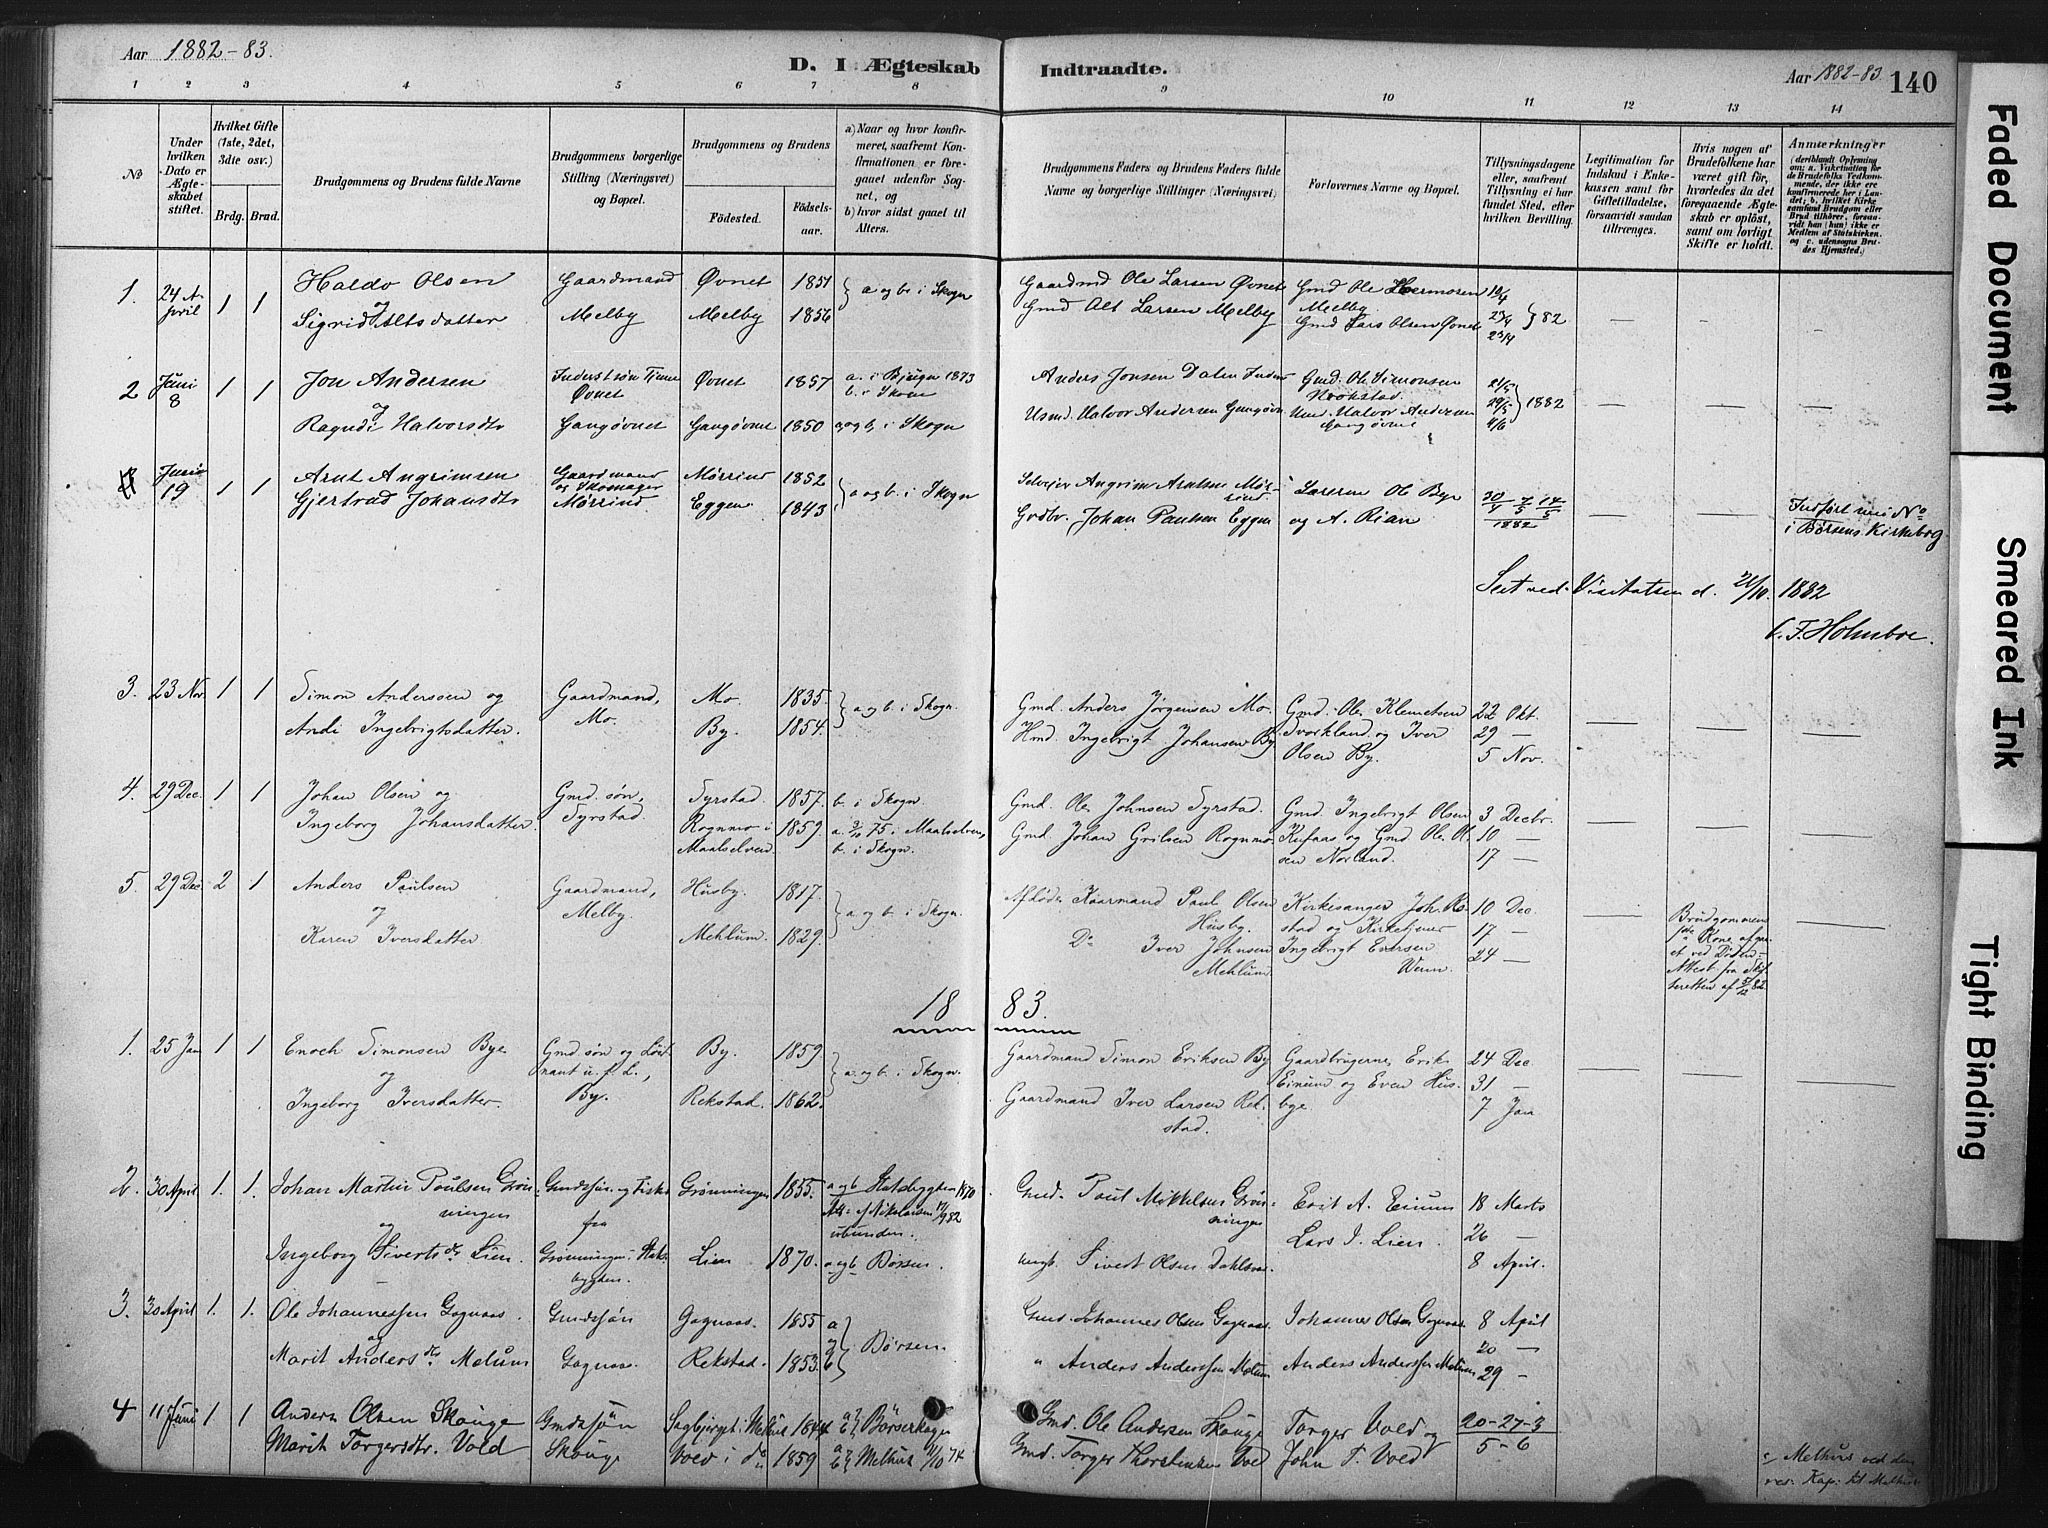 Aar 1882-83.
D. I Ægteskab Indtraadte.
Aar 1882-83. 140
1 2 3 4 5 6 7 8 9 10 11 12 13 14
No
Under hvilken Dato er Ægteskabet stiftet.
Hvilket Gifte (1ste, 2det, 3die osv.)
Brdg. Brud.
Brudgommens og Brudens fulde Navne
Brudgommens borgerlige Stilling (Næringsvei) og Bopæl.
Brudgommens og Brudens
Fødested. Fødselsaar.
a) Naar og hvor konfirmeret, saafremt Konfirmationen er foregaaet udenfor Sognet, og
b) hvor sidst gaaet til Alters.
Brudgommens Faders og Brudens Faders fulde Navne og borgerlige Stillinger (Næringsvei)
Forlovernes Navne og Bopæl.
Tillysningsdagene eller, saafremt Tillysning ei har fundet Sted, efter hvilken Bevilling.
Legitimation for Indskud i Enkekassen samt for Giftetilladelse, forsaavidt saadan tiltrænges.
Hvis nogen af Brudefolkene har været gift før, hvorledes da det foregaaende Ægteskab er opløst, samt om lovligt Skifte er holdt.
Anmærkninger
1. 24 April 1 1 Haldo Olsen Gaardmand Øvnet 1851 a og b. i Skogn Gaardmd Ole Larsen Øvnet Gmd Ole Hermosen 10/4
og Melby
Sigrid Altsdatter Melby Melby 1856 Gmd Alt Larsen Melby Gmd Lars Olsen Øvnet 82
2 Juni 8 1 1 Jon Andersen Øvnet Øvnet 1857 a. i Bjugn 1873 Anders Jonsen Dalen Gmd. Ole Simonsen 21/5
og b. i Skogn 29/5 1882
Ragndi Halvorsdtr Gangøvnet Gangøvnet 1850 a og b. i Skogn Usmd. Halvor Andersen Gangøvn. Halvor Andersen Gangøvnet 4/6
Juni 19 1 1 Arnt Angrimsen Gaardmand og Skomager Mørrind 1852 a og b. i Skogn Angrim Arntsen Mørrind Læreren Ole Bye 30/4 7/5 14/5
Gjertrud Johansdtr Mørrind Eggen 1843 Grdbr. Johan Paulsen Eggen og A. Rian 1882 Indført under No i Børsens Kirkebog
Seet ved Visitatsen d. 21/10. 1882
C. F. Holmboe.
3. 23 Nov. 1 1 Simon Anderssen og Gaardmand, Mo. 1835. a og b. i Skogn. Gmd. Anders Jørgensen Mo. Gmd. Ole Klemetsen 22 Okt.
Andi Ingebrigtsdatter. Mo. By. 1854. Hmd. Ingebrigt Johansen By og Iver 29 —
Olsen By. 5 Nov.
4. 29 Dec. 1 1 Johan Olsen og Gmd. søn, Syrstad. 1857. b. i Skogn. Gmd. Ole Johnsen Syrstad. Gmd. Ingebrigt Olsen 3 Decbr.
Ingeborg Johansdatter. Syrstad. Rognmo i Maalselven 1859 a. 3/10 75 i Maalselven, Gmd. Johan Grilsen Rognmo og Gmd. Ole Ol- 10 —
b. i Skogn. sen Norland. 17 —
5. 29 Dec. 2 1 Anders Paulsen Gaardmand, Husby. 1817. a og b. i Skogn. Afdøde Kaarmand Paul Olsen Husby. Kirkesanger Joh. Re- 10 Dec.
og Melby. stad og Kirketjener 17 — Brudgommens
Karen Iversdatter Mehlum. 1829. Do Iver Johnsen Mehlum. Ingebrigt Eversen Wenn. 24 — Kone afgaaet ved Døden — Attest fra Skifteretten af 5/12 82.
1883.
1. 25 Jan 1 1 Enoch Simonsen Bye Gmd søn og Løit- By. 1859 a. og b. i Skogn. Gaardmand Simon Eriksen By Gaardbrugerne Erik 24 Dec
og nant u. f. L., Einum og Even Hus- 31 —
Ingeborg Iversdatter. By. Rekstad. 1862. Gaardmand Iver Larsen Rek- bye. 7 Jan
stad.
2. 30 April 1. 1. Johan Martin Poulsen Grøn- Gmdssøn og Fisker Grønningen 1855. a og b Stadsbygden 1870 Gmd. Paul Mikkelsen Grøn- Erit A. Einum 18 Marts
ningen fra ningen Lars I. Lien. 26 —
og ubunden.
Ingeborg Siverts dr Lien. Grønningen Stadsbygden. Lien 1870. a og b Børsen. Sivert Olsen Dahlsve. 8 April.
3. 30 April 1. 1. Ole Johannessen Gagnaas. Gmdssøn Gagnaas 1855 a og b Børsen. Gmd. Johannes Olsen Gagnaas. Johannes Olsen Gagnaas 8 April
og 20 —
Marit Anders dr Melum Gagnaas. Rekstad. 1853. " Anders Anderssen Melum Anders Anderssen Melum 29 —
4 11 Juni 1 1 Anders Olsen Skauge Gmdssøn Melhus 1844 Børseskogn Gmd. Ole Andersen Skauge Torger Vold og 20-27-3
Marit Torgersdtr. Vold Skauge Vold i do 1859 Melhus 1/10 74 Gmd. Torger Thorstensen Vold John T. Vold 5-6
c) Melhus ved den res. Kap. til Melhus
Faded Document
Smeared Ink
Tight Binding